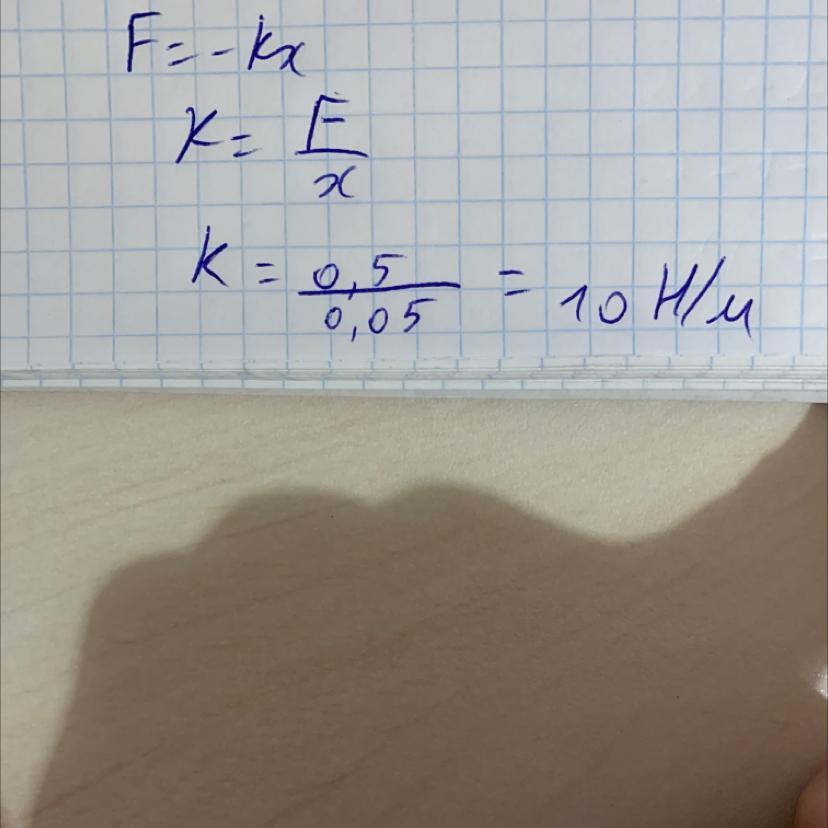 F = - kx
K = F/x
K = 0,5/0,05 = 10 Н/м